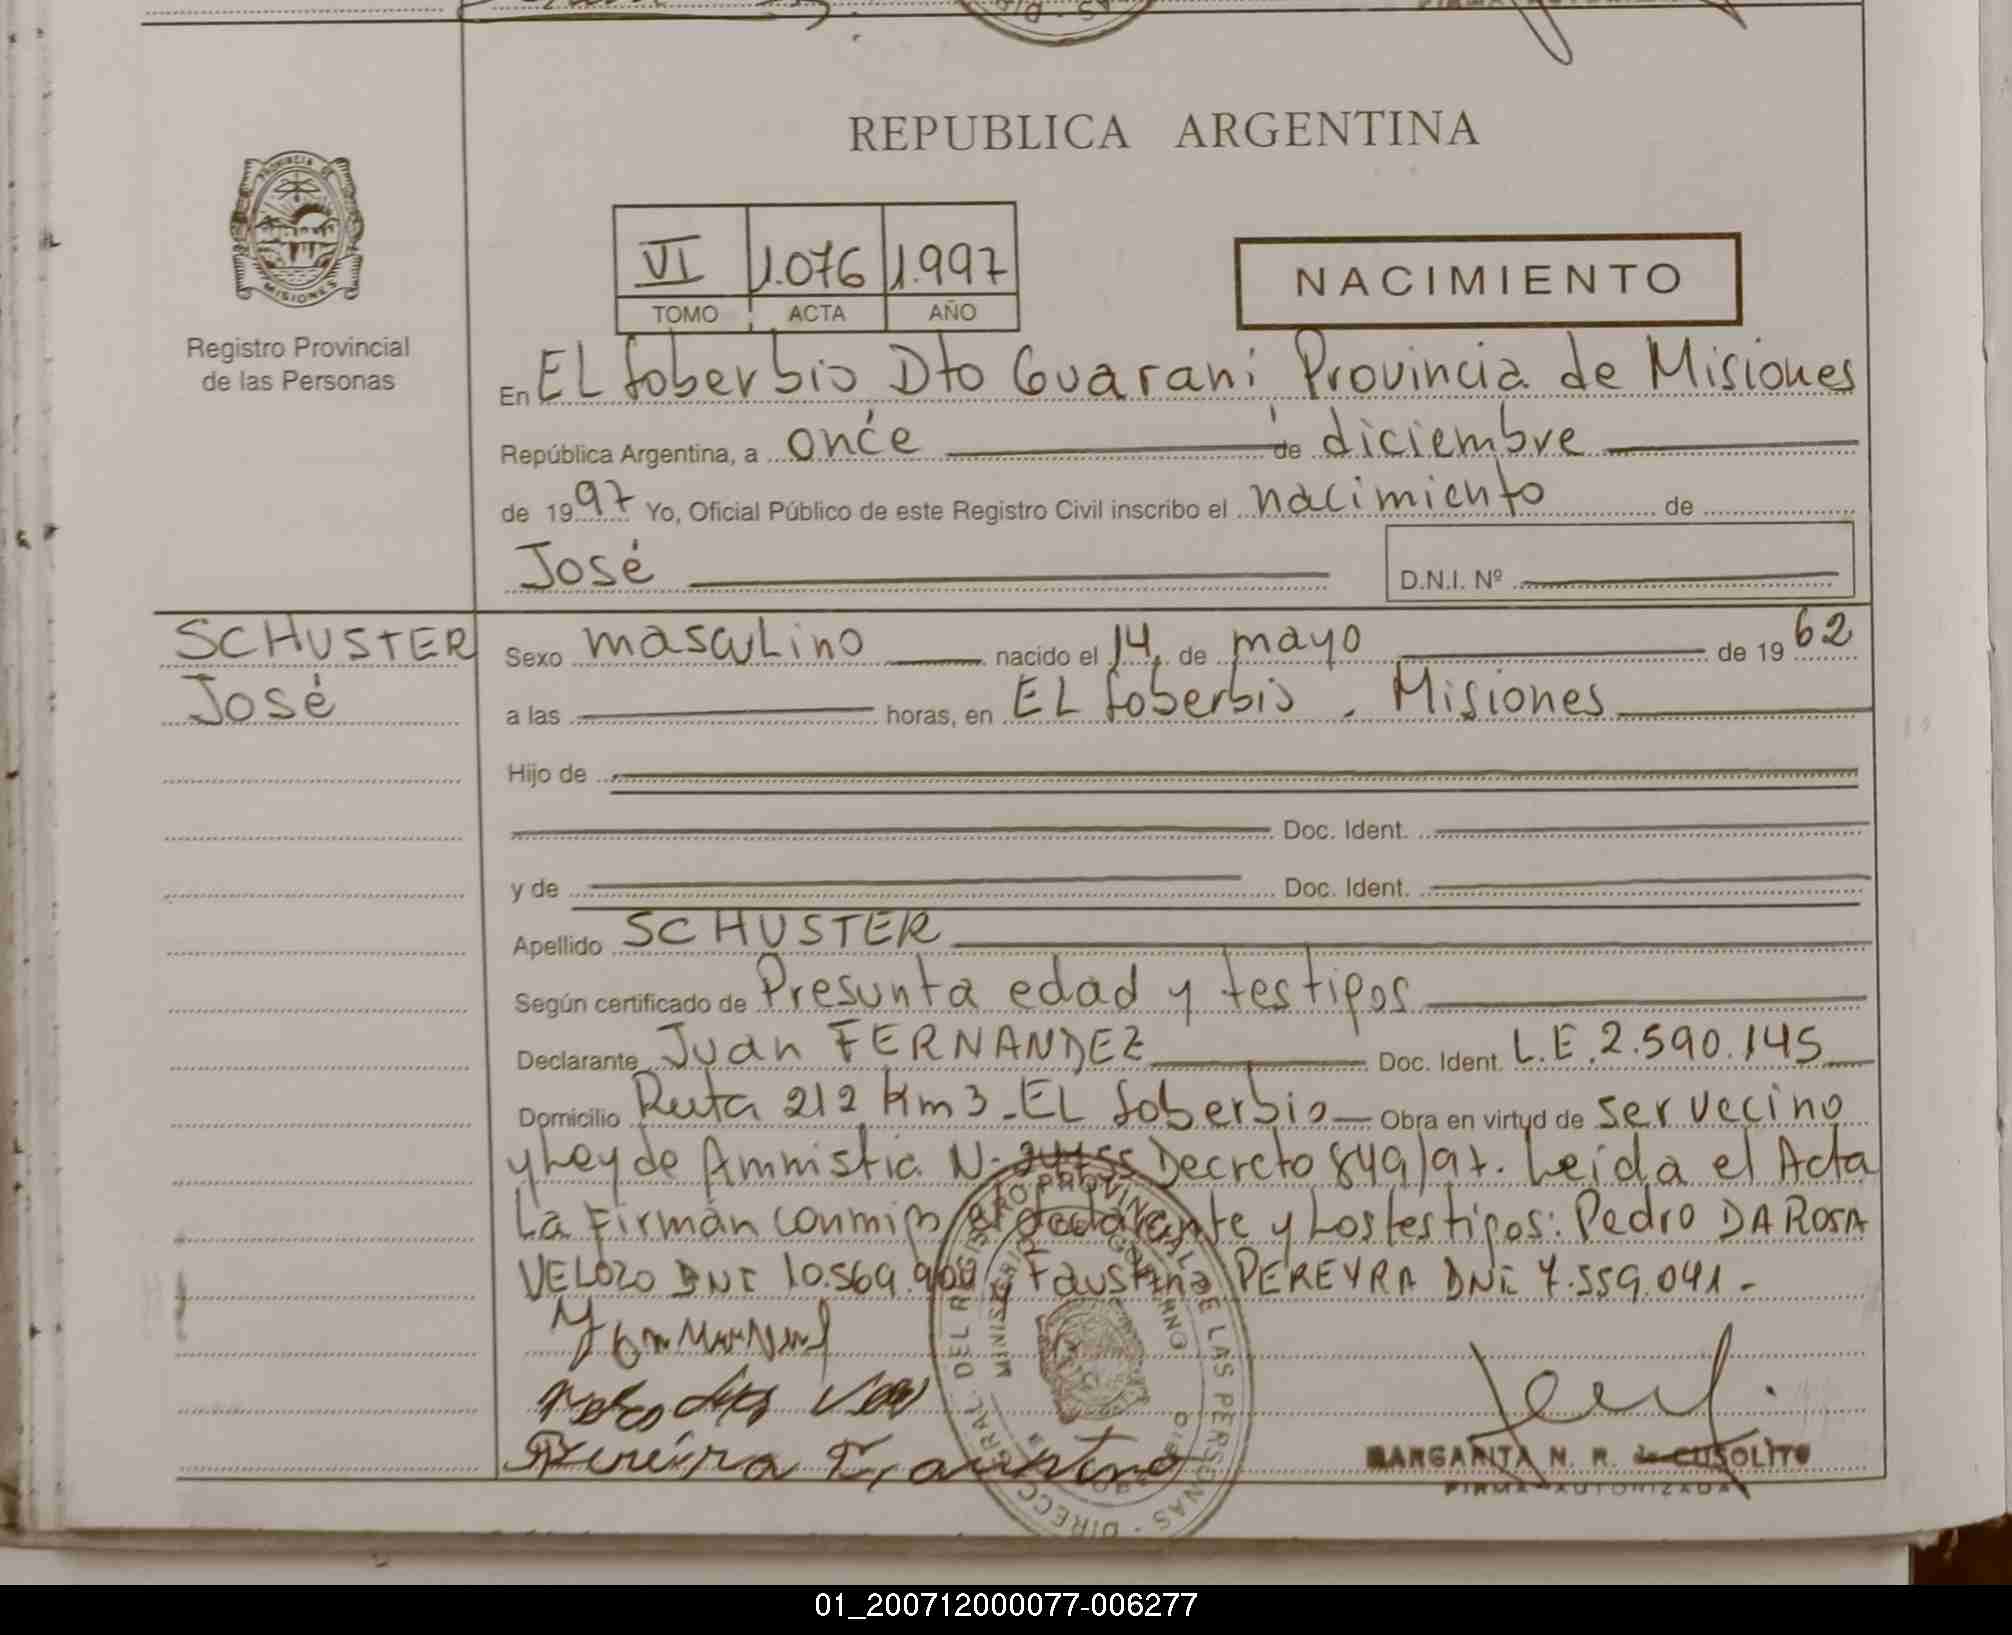 REPUBLICA ARGENTINA
PROVINCIA DE
MISIONES
Registro Provincial
de las Personas
VI 1.076 1.997
TOMO ACTA AÑO
NACIMIENTO
En EL Soberbio Dto Guaraní Provincia de Misiones
República Argentina, a once de diciembre
de 1997 Yo, Oficial Público de este Registro Civil inscribo el nacimiento de
José D.N.I. Nº
SCHUSTER
José
Sexo masculino nacido el 14 de mayo de 1962
a las horas, en EL Soberbio . Misiones
Hijo de
Doc. Ident.
y de Doc. Ident.
Apellido SCHUSTER
Según certificado de Presunta edad y testigos
Declarante Juan FERNANDEZ Doc. Ident. L.E. 2.590.145
Domicilio Ruta 212 Km 3 - EL Soberbio Obra en virtud de ser vecino
y Ley de Amnistia N. Decreto 849/97. Leida el Acta
La Firman conmigo el declarante y Los testigos: Pedro DA ROSA
VELOZO DNI 10.569. Faustino PEREYRA DNI 7.559.041 -
Pereira Faustino
MARGARITA N. R. de CUSOLITO
FIRMA AUTORIZADA
01_200712000077-006277